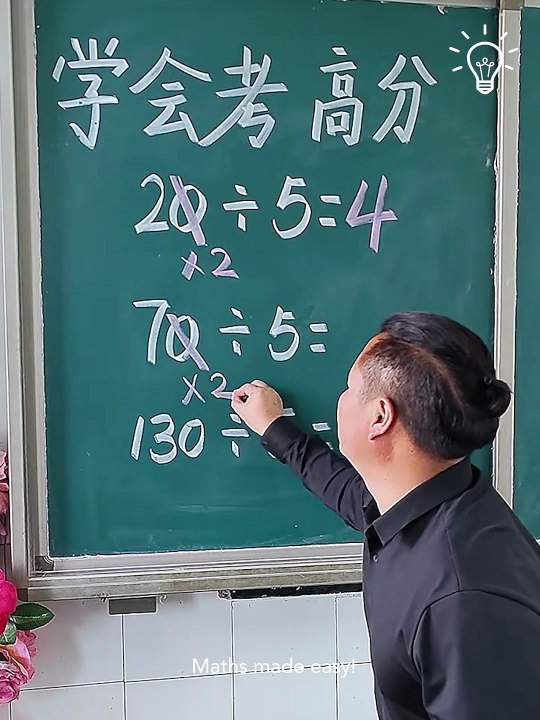 学会考高分
20÷5=4
×2
70÷5=
×2
130÷5=
Maths made easy!